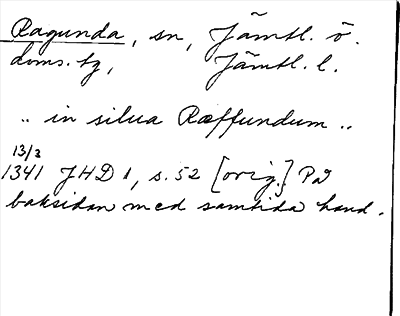 Ragunda, sn, Jämtl. ö.
doms. tg, Jämtl. l.
.. in silua Ræffundum ..
13/3
1341 JHD 1, s. 52 [orig.] På
baksidan med samtida hand.